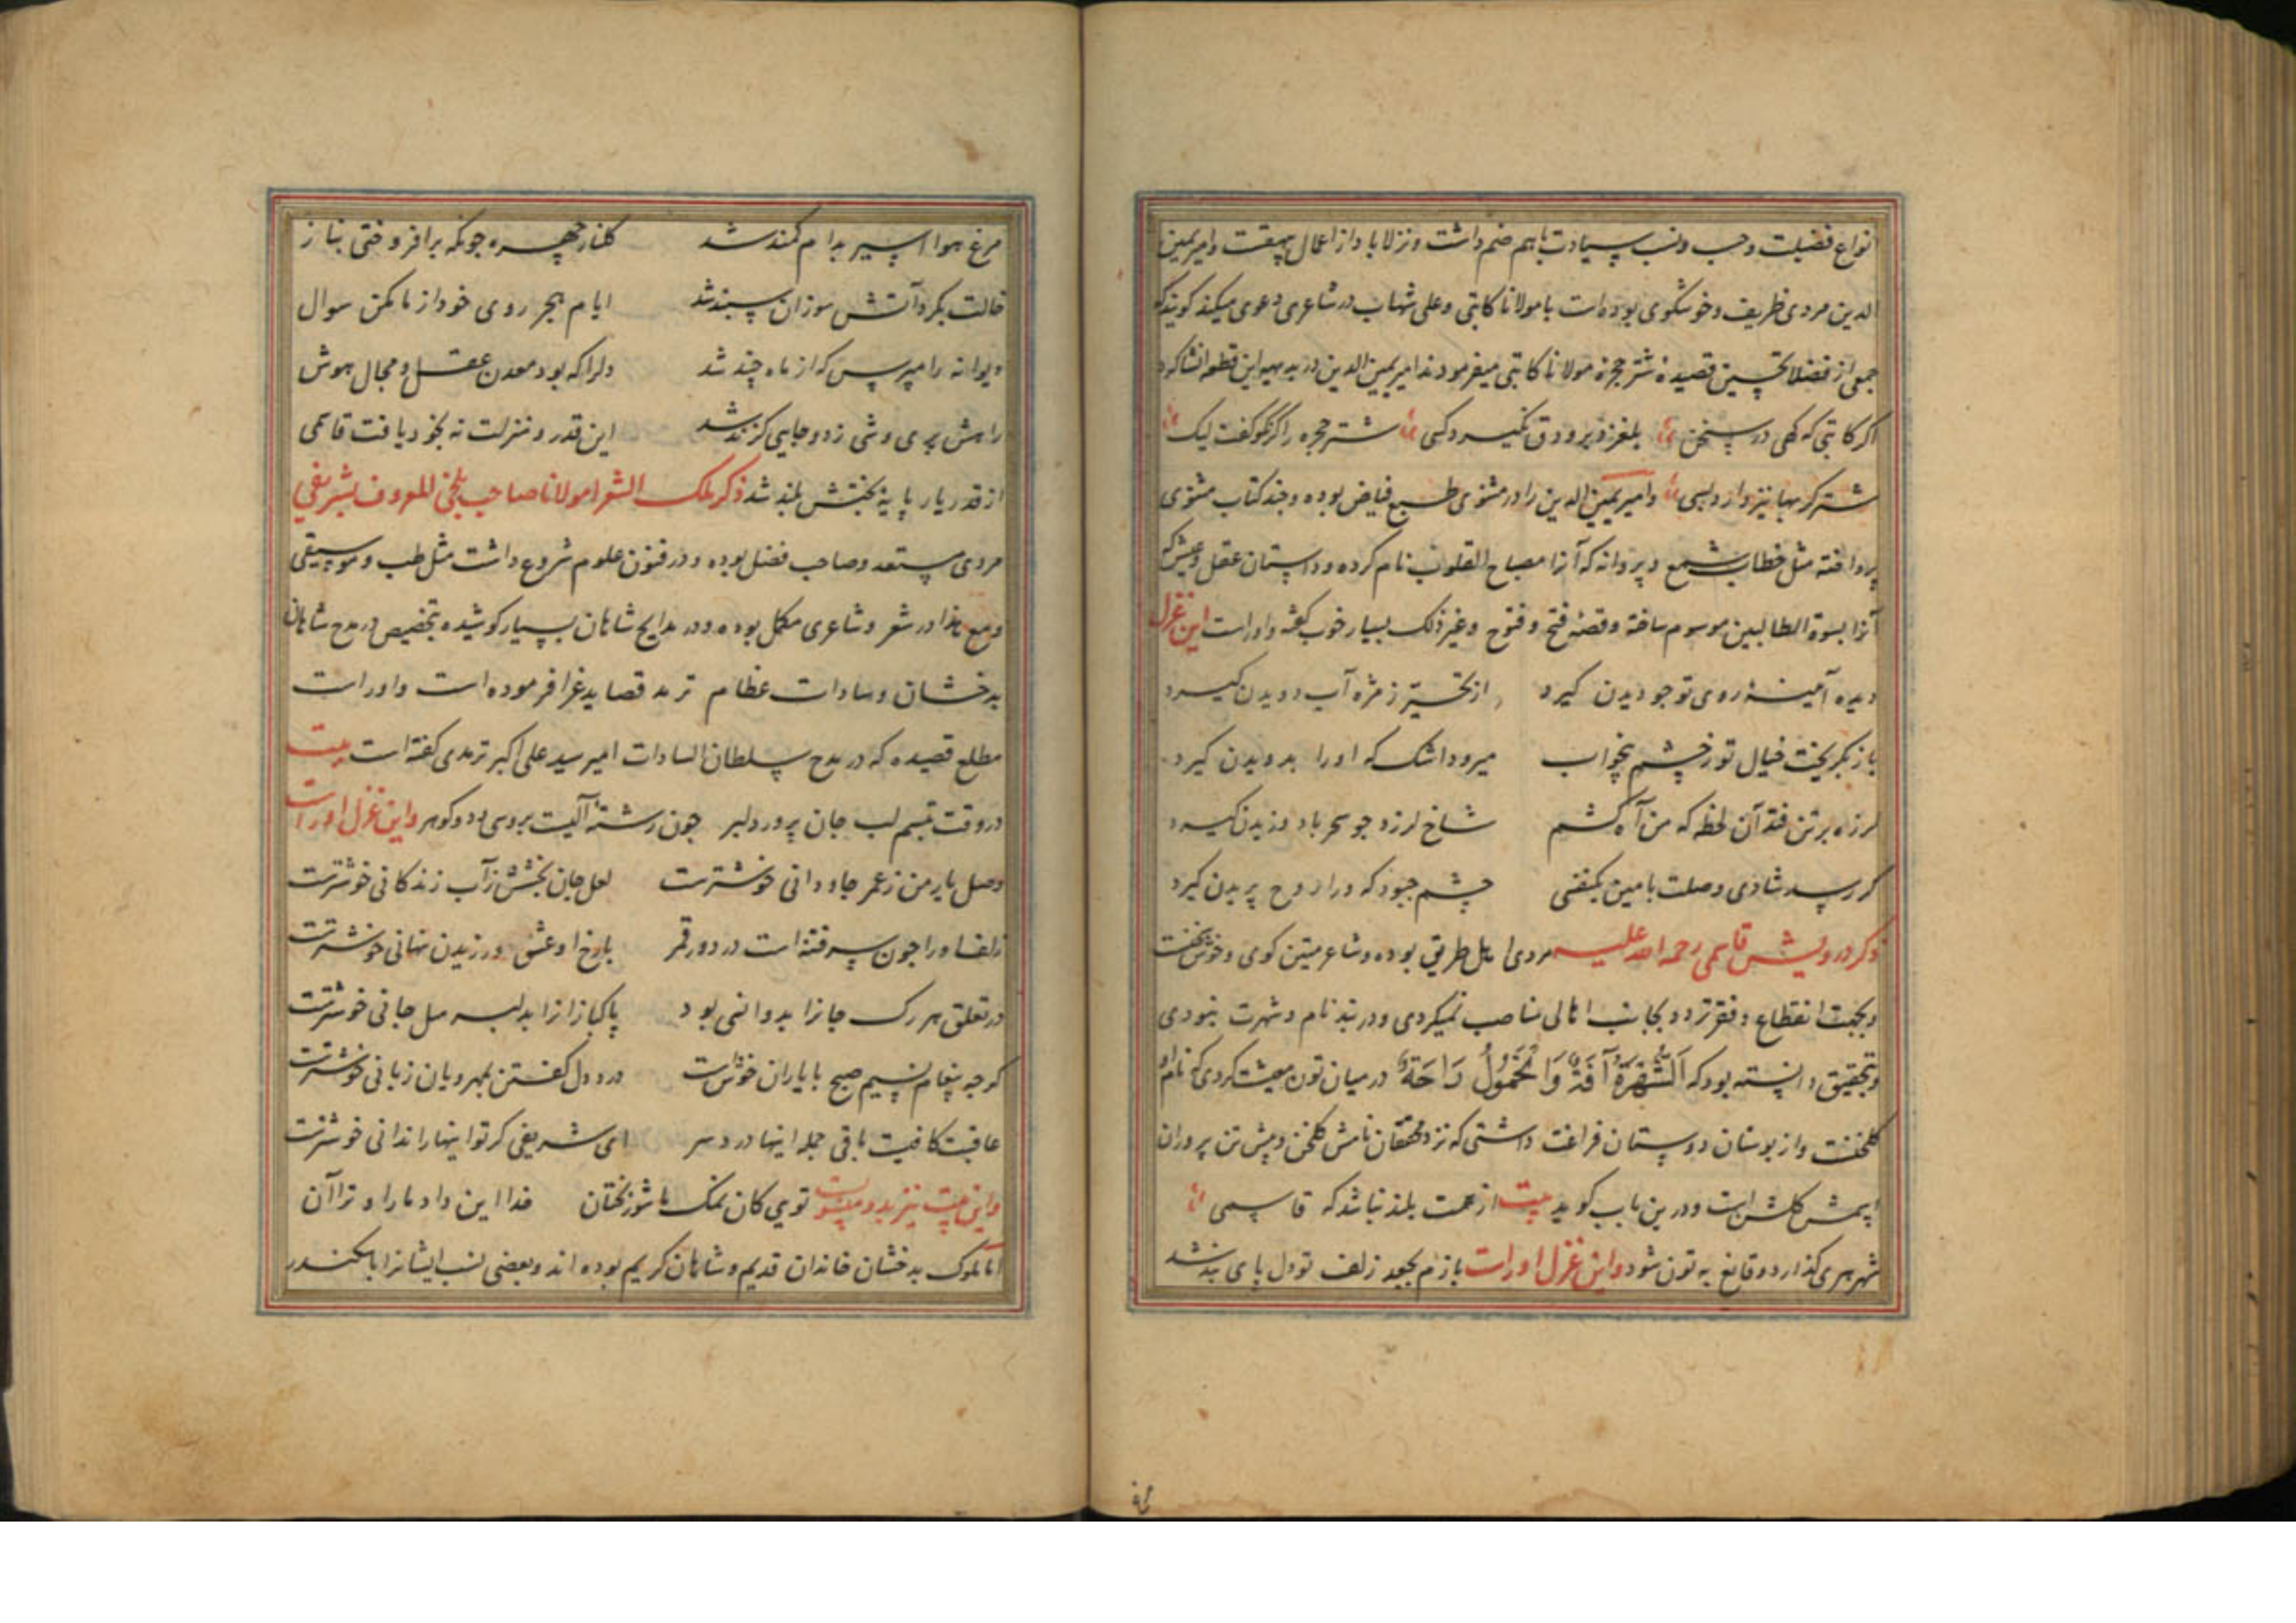 انواع فضیلت و حسب و نسب سیادت باهم ضم داشت و نزلاباد از اعمال بیهقست و امیر یمین
الدین مردی ظریف و خوشگوی بوده است با مولانا کاتبی و علی شهاب در شاعری دعوی میکند کویند که
جمعی از فضلا تحسین قصیدهٔ شتر حجرهٔ مولانا کاتبی میفرمودند امیر یمین الدین در بدیهه این قطعه انشا کرد
اکر کاتبی که کهی در سخن بلغزد برو دق نگیرد کسی شتر حجره را کر نکو گفت لیک
شتر کربها نیز دارد بسی و امیر یمین الدین را در مثنوی طبع فیاض بوده و چند کتاب مثنوی
پرداخته مثل خطاب شمع و پروانه که آنرا مصباح القلوب نام کرده و داستان عقل و عشق که
آنرا بسوة الطالبین موسوم ساخته و قصهٔ فتح و فتوح و غیر ذلک بسیار خوب گفته و اوراست این غزل
دیده آمینهٔ روی تو چو دیدن کیرد از تحسیر ز مژه آب دویدن کیرد
باز بکریخت خیال تو ز چشمم بخواب میرود اشک که اورا بدویدن کیرد
لرزه بر تن فتد آن لحظه که من آه کشم شاخ لرزد چو سحر باد وزیدن کیرد
کر رسد شادی وصلت بامین یکنفسی چشم چبود که ورا روح پریدن کیرد
ذکر درویش قاسمی رحمه الله علیه مردی اهل طریق بوده و شاعر متین کوی و خوش سخنست
و بجهت انقطاع و فقر تردد بجانب اهالی مناصب نمیکردی و در بند نام و شهرت نبودی
و بتحقیق دانسته بود که اَلشُّهْرَةُ آفَةٌ وَالْخُمُولُ رَاحَةٌ در میان تون معیشت کردی که نام او
کلخنست و از بوستان دوستان فراغت داشتی که نزد محققان نامش کلخن و پیش تن پروران
اسمش کلشن است و درین باب کوید بیت از همت بلند نباشد که قاسمی
شهر هری کذارد و قانع به تون شود و این غزل اوراست بازم بجعد زلف تو دل پای بند شد
مرغ هوا اسیر بدام کمند شد کلنار چهره چونکه برافروختی بناز
خالت بکرد آتش سوزان سپند شد ایام هجر روی خود از ما مکن سوال
دیوانه را مپرس که از ماه چند شد دلرا که بود معدن عقل و مجال هوش
راهش پری وشی زد و جایی کزند شد این قدر و منزلت نه بخود یافت قاسمی
از قدر یار پایهٔ بختش بلند شد ذکر ملک الشعرا مولانا صاحب بلخی المعروف بشریفی
مردی مستعد و صاحب فضل بوده و در فنون علوم شروع داشت مثل طب و موسیقی
و مع هذا در شعر و شاعری مکمل بوده و در مدایح شاهان بسیار کوشیده بتخصیص در مدح شاهان
بدخشان و سادات عظام ترمد قصاید غرا فرموده است و اوراست
مطلع قصیده که در مدح سلطان السادات امیر سید علی اکبر ترمدی گفته است بیت
در وقت تبسم لب جان پرور دلبر چون رشتهٔ آلیست بروسی ودو کوهر و این غزل اوراست
وصل یار من ز عمر جاودانی خوشترست لعل جان بخشش ز آب زندکانی خوشترست
زلف اورا چون سر فتنه است در دور قمر بارخ او عشق ورزیدن نهانی خوشترست
در تعلق هر رک جانرا بدوانسی بود پاکبازانرا بدلبر میل جانی خوشترست
کرچه پیغام نسیم صبح با یاران خوش است درد دل کفتن بمهرویان زبانی خوشترست
عاقبت کافیت باقی جمله اینها درد سر ای شریفی کر تو اینها را ندانی خوشترست
و این بیت نیز بدو منسوبست توی کان نمک ما شوربختان خدا این داد ما را و ترا آن
اما ملوک بدخشان خاندان قدیم و شاهان کریم بوده اند و بعضی نسب ایشانرا باسکندر